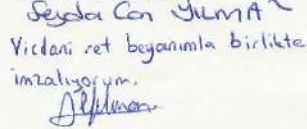 Şeyda Can YILMAZ
Vicdani ret beyanımla birlikte
imzalıyorum.